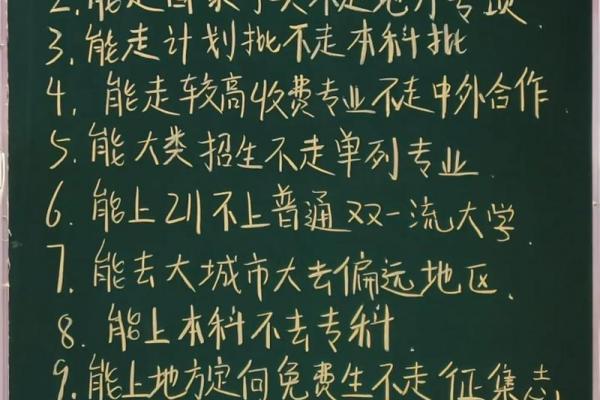 2.能走国家专项不走地方专项
3.能走计划批不走本科批
4.能走较高收费专业不走中外合作
5.能大类招生不走单列专业.
6.能上211不上普通双一流大学.
7.能去大城市大去偏远地区.
8.能上本科不去专科.
9.能上地方定向免费生不走征集志